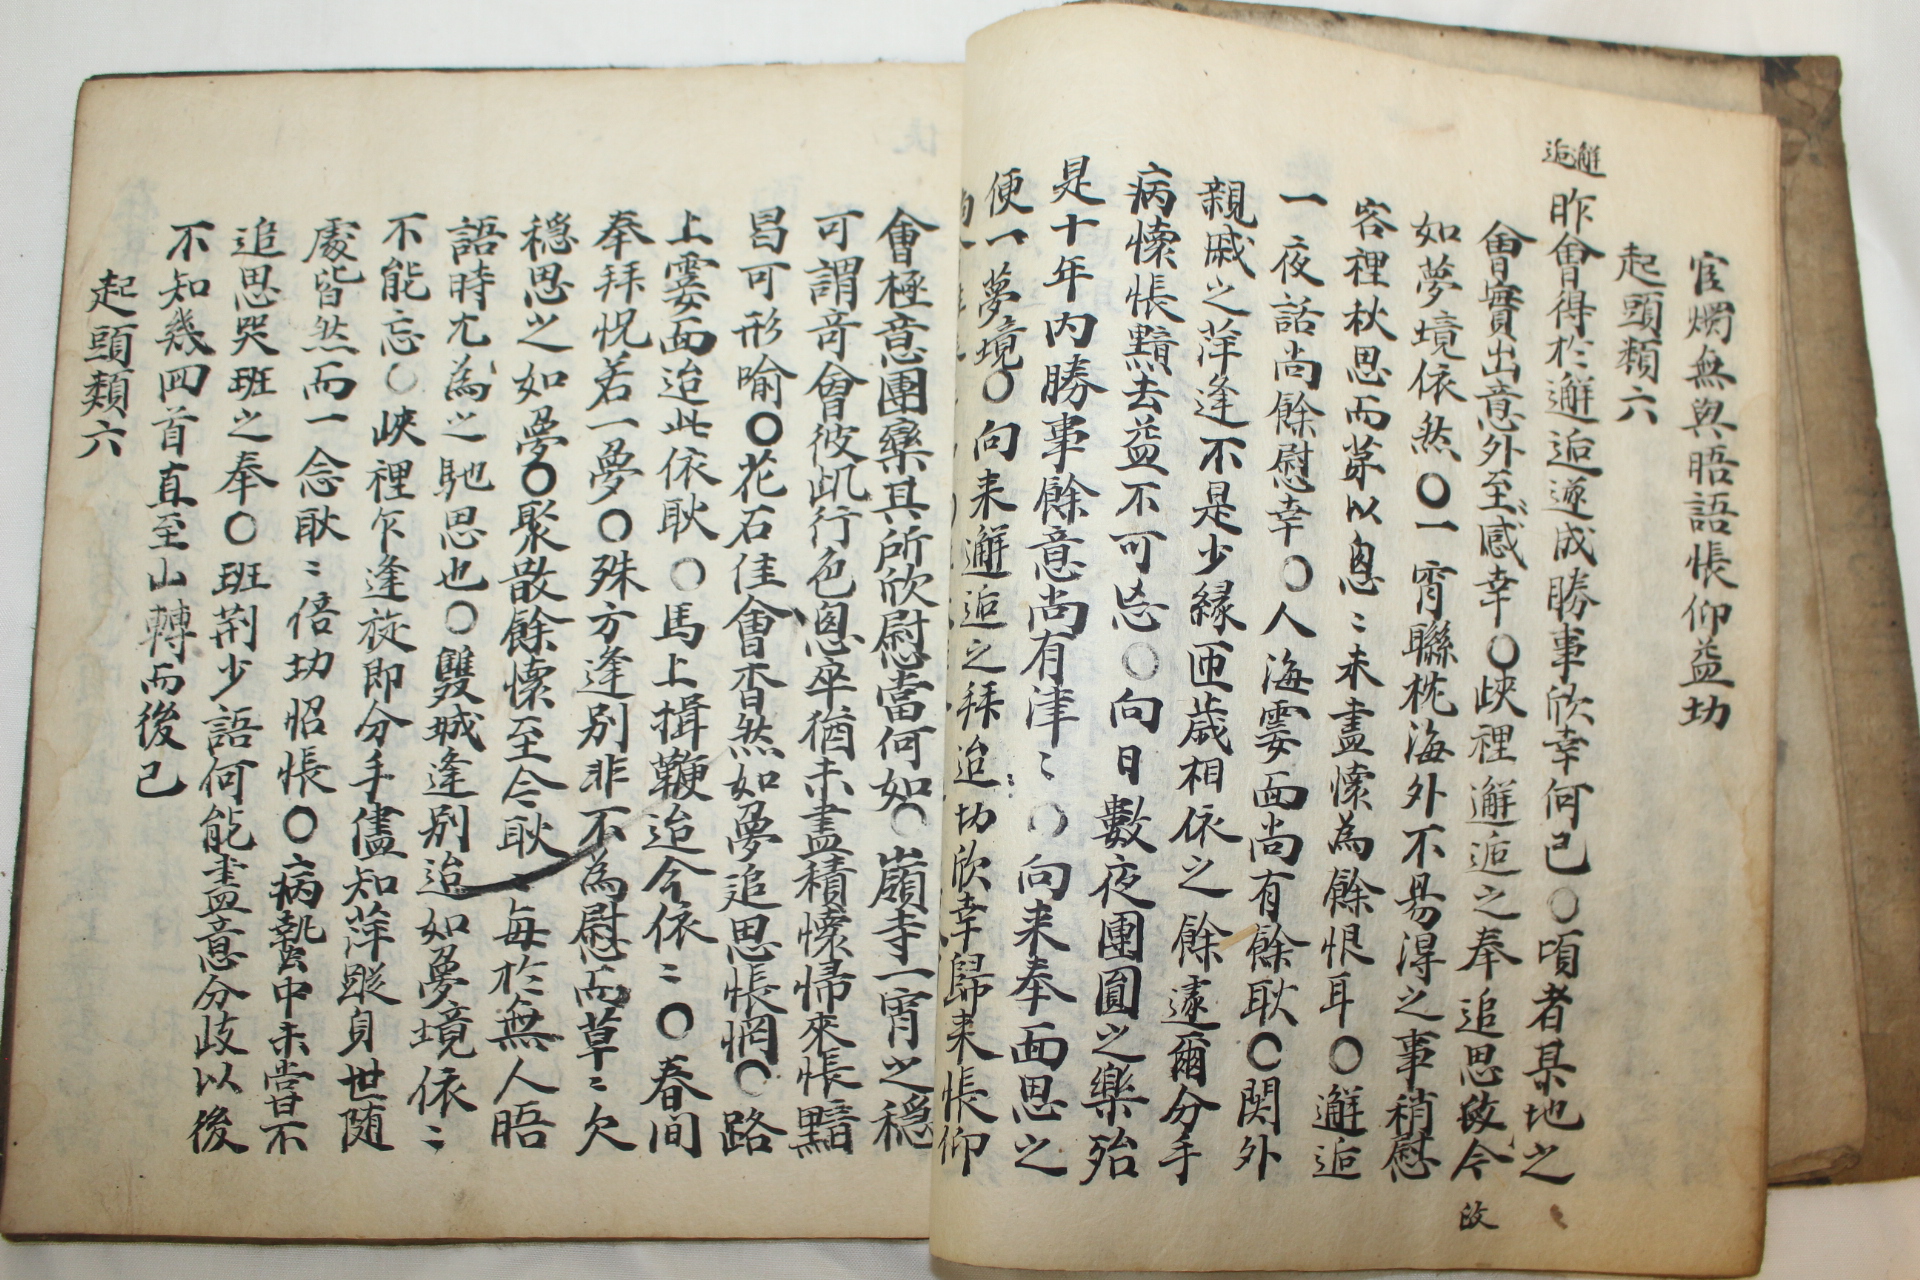 官燭無與晤語悵仰益切
起頭類六
邂逅
昨會得於邂逅遂成勝事欣幸何已〇頃者某地之
會實出意外至感幸〇峽裡邂逅之奉追思故今
改
如夢境依然〇一宵聯枕海外不易得之事稍慰
客裡秋思而苐以恖〻未盡懷為餘恨耳〇邂逅
一夜話尚餘慰幸〇人海霎面尚有餘耿〇関外
親戚之萍逢不是少緣匝歲相依之餘遽爾分手
病懷悵黯去益不可忘〇向日數夜團圓之樂殆
是十年內勝事餘意尚有津〻〇向来奉面思之
便一夢境〇向来邂逅之拜迨切欣幸歸来悵仰
會極意團欒其所欣慰當何如〇嶺寺一宵之穩
可謂竒會彼此行色恖卒猶未盡積懷歸來悵黯
曷可形喻〇花石佳會杳然如夢追思悵惘〇路
上霎面迨此依耿〇馬上揖鞭迨今依〻〇春間
奉拜怳若一夢〇殊方逢別非不為慰而草〻欠
穩思之如夢〇聚散餘懷至今耿〻每於無人晤
語時尤為之馳思也〇雙城逢別迨如夢境依〻
不能忘〇峽裡乍逢旋即分手儘知萍蹤身世随
處皆然而一念耿〻倍切怊悵〇病蟄中未嘗不
追思哭班之奉〇班荆少語何能盡意分歧以後
不知幾四首直至山轉而後已
起頭類六